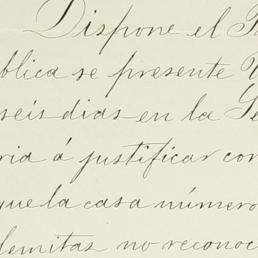 Dispone el P
blica se presente V
seis dias en la Se
ria á justificar con
que la casa número
lemitas no reconoc